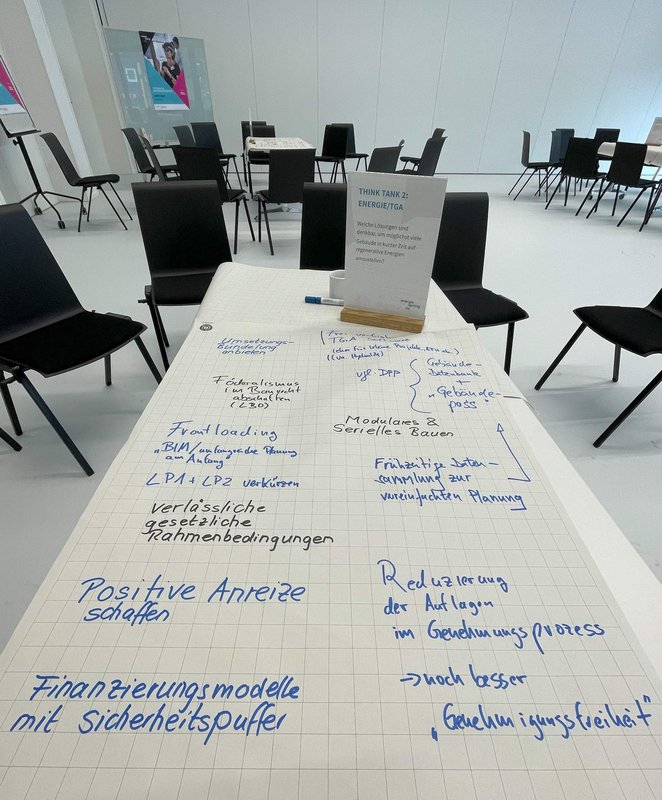 THINK TANK 2:
ENERGIE/TGA
Welche Lösungen sind
denkbar, um möglichst viele
Gebäude in kurzer Zeit auf
regenerative Energien
umzustellen?
Umsetzungs-
bündelung
anbieten
Föderalismus
im Baurecht
abschalten
(LBO)
Frontloading
"BIM/umfangreiche Planung
am Anfang
LP1 + LP2 verkürzen
Verlässliche
gesetzliche
Rahmenbedingungen
Positive Anreize
schaffen
Finanzierungsmodelle
mit Sicherheitspuffer
TGA
vgl. DPP
Gebäude-
Datenbank
+
"Gebäude-
pass"
Modulares &
Serielles Bauen
Frühzeitige Daten-
sammlung zur
vereinfachten Planung
Reduzierung
der Auflagen
im Genehmungsprozess
→ noch besser
"Genehmigungsfreiheit"